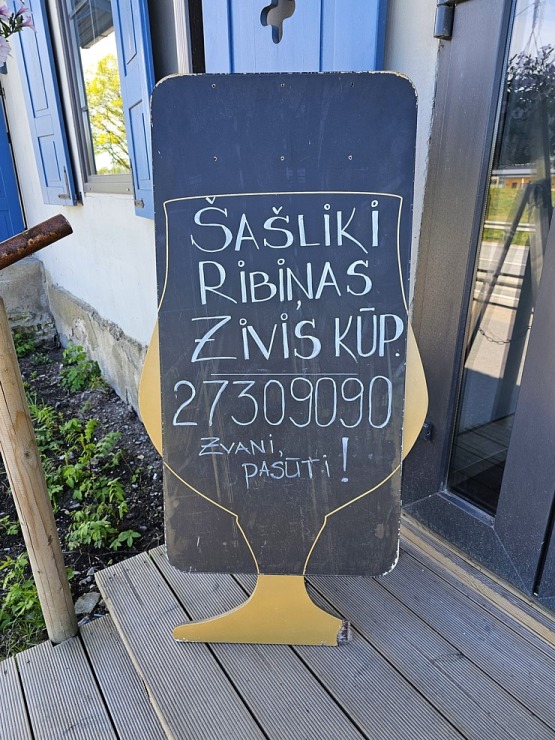 ŠAŠLIKI
RIBIŅAS
ZIVIS KŪP.
27309090
ZVANI,
PASŪTI!